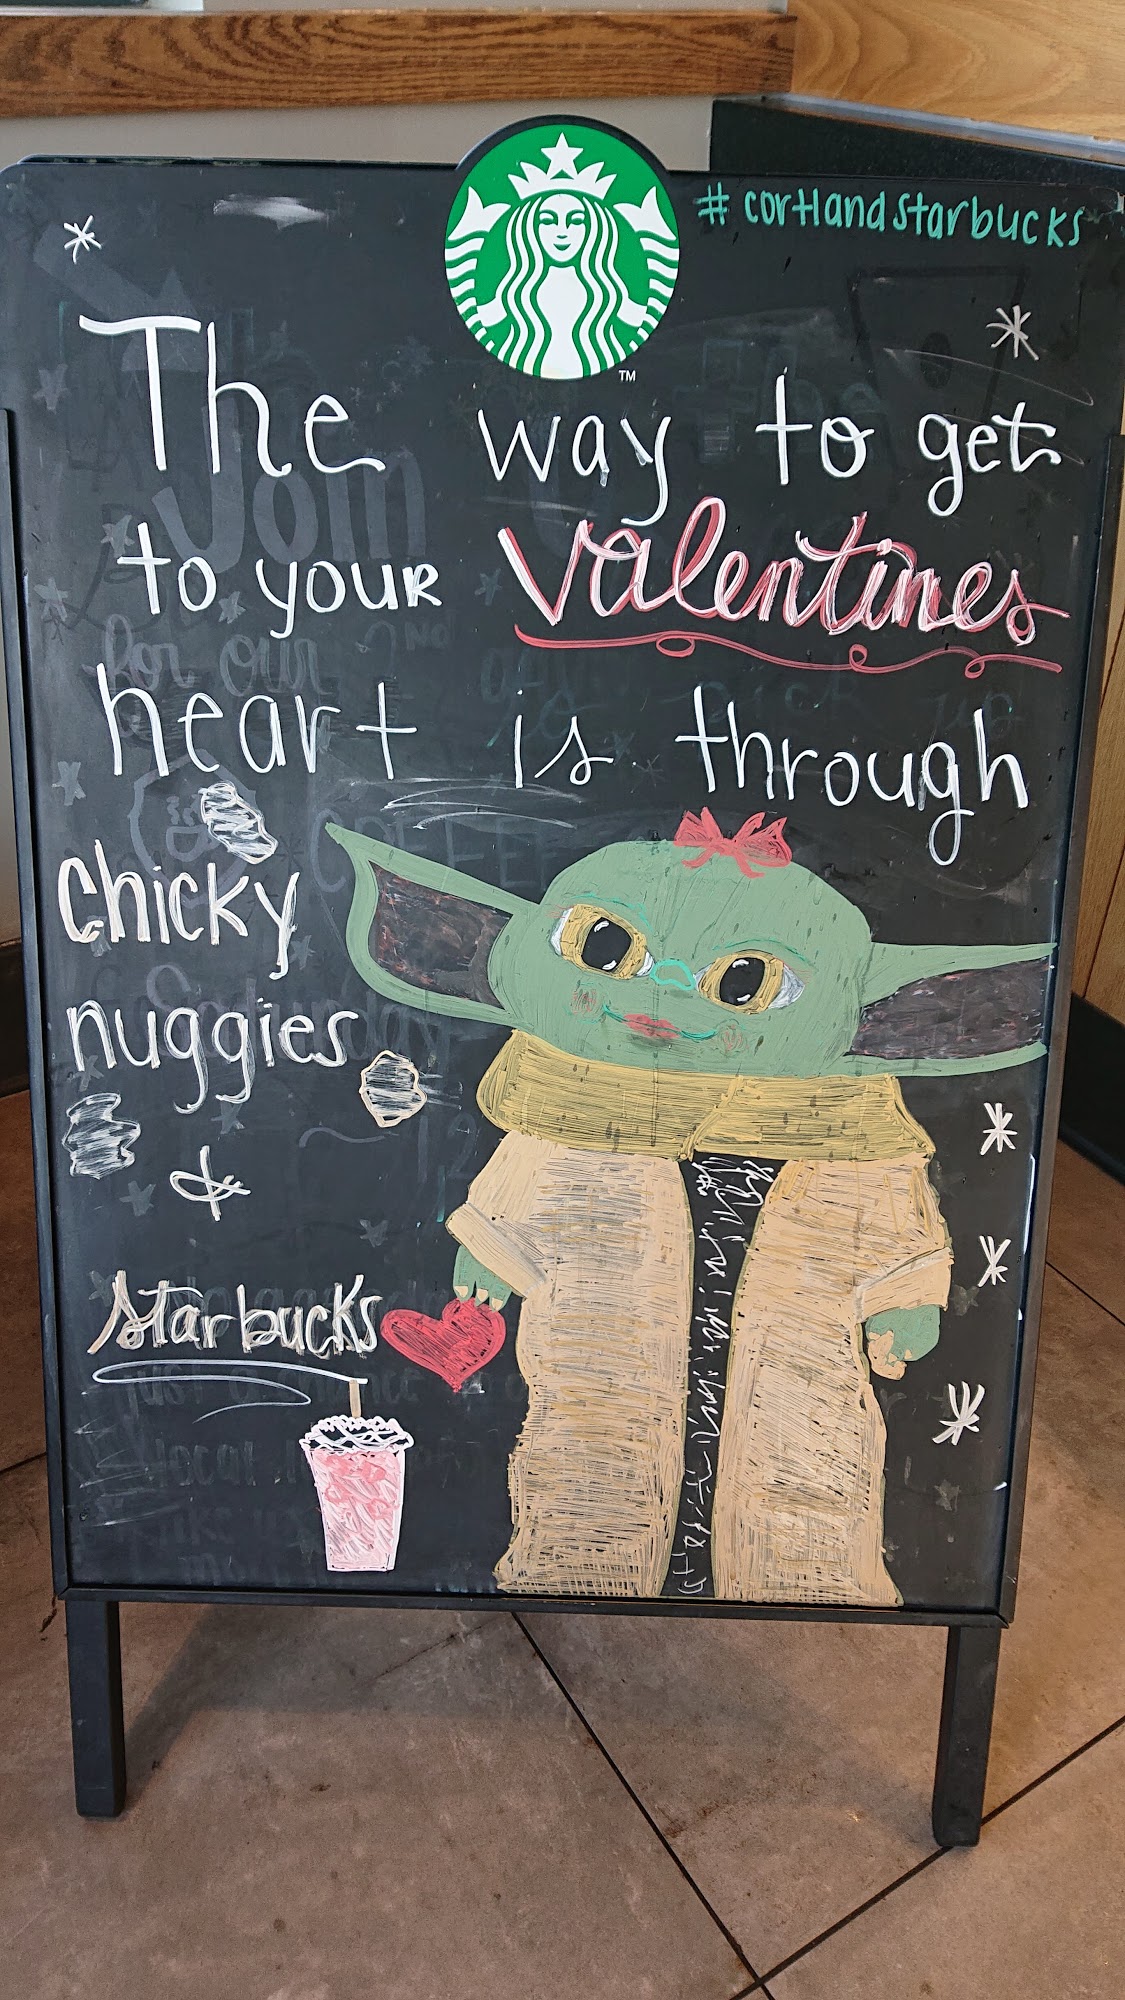 #cortlandstarbucks
TM
The way to get
to your valentines
heart is through
chicky
nuggies
&
starbucks